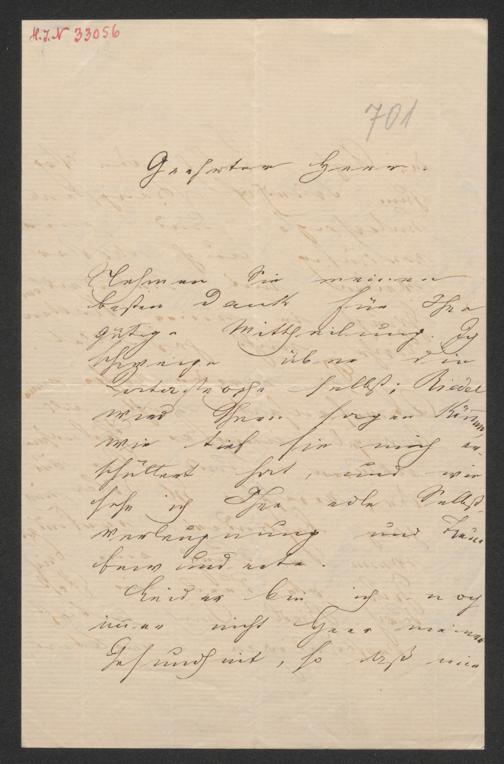 H.I.N 33056
701
Geehrter Herr.
Nehmen Sie meinen
besten Dank für Ihre
gütige Mittheilung. Ich
schweige über die
Katastrophe selbst; Riedel
wird Ihnen sagen können,
wie tief sie mich er-
schüttert hat, und wie
sehr ich Ihre edle Selbst-
verleugnung und Treue
bewundere.
Leider bin ich noch
immer nicht Herr meiner
Gesundheit, so daß mir